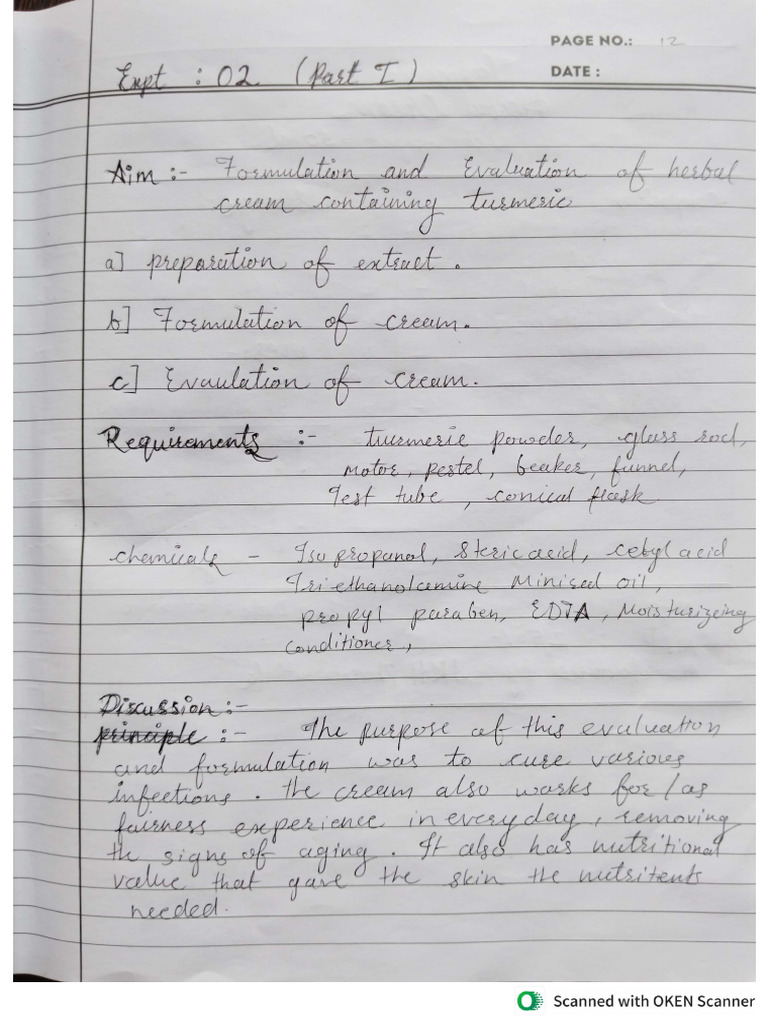 PAGE NO.: 12
Expt : 02 (Part I)
DATE :
Aim :- Formulation and Evaluation of herbal
cream containing turmeric
a] preparation of extract.
b] Formulation of cream.
c] Evaulation of cream.
Requirements :- turmeric powder, glass rod,
motor, pestel, beaker, funnel,
Test tube, conical flask
chemicals - Isopropanol, Steric acid, cetyl acid
Tri ethanolamine Minised oil,
propyl paraben, EDTA, Moisturizeing
conditioner,
Discussion :-
principle :- The purpose of this evaluation
and formulation was to cure various
infections. the cream also works for/as
fairness experience in everyday, removing
the signs of aging. It also has nutritional
value that gave the skin the nutritents
needed.
Scanned with OKEN Scanner